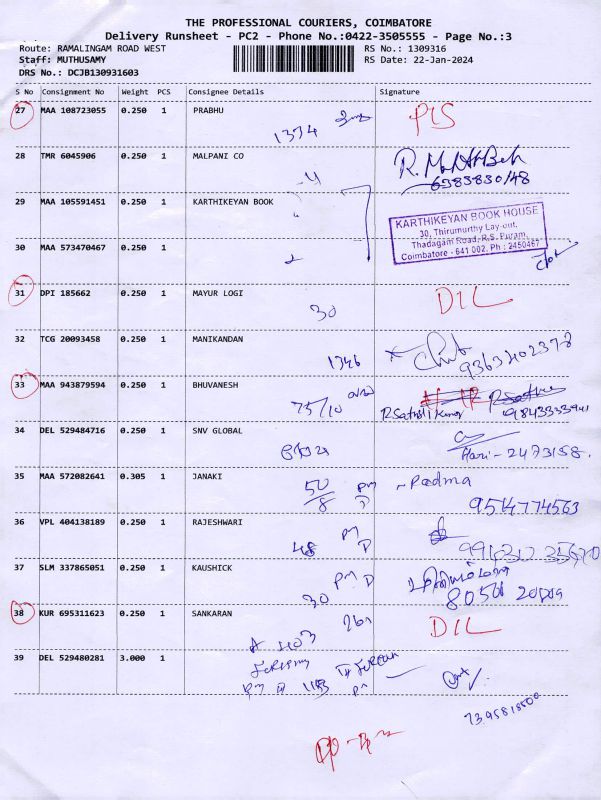 THE PROFESSIONAL COURIERS, COIMBATORE
Delivery Runsheet - PC2 - Phone No.:0422-3505555 - Page No.:3
Route: RAMALINGAM ROAD WEST RS No.: 1309316
Staff: MUTHUSAMY RS Date: 22-Jan-2024
DRS No.: DCJB130931603
S No Consignment No Weight PCS Consignee Details Signature
27 MAA 108723055 0.250 1 PRABHU
1334
28 TMR 6045906 0.250 1 MALPANI CO
6383830148
29 MAA 105591451 0.250 1 KARTHIKEYAN BOOK
KARTHIKEYAN BOOK HOUSE
30, Thirumurthy Lay-out,
Thadagam Road, R.S. Puram,
Coimbatore - 641 002. Ph : 2450467
30 MAA 573470467 0.250 1
31 DPI 185662 0.250 1 MAYUR LOGI DIL
30
32 TCG 20093458 0.250 1 MANIKANDAN
1346 9363402378
33 MAA 943879594 0.250 1 BHUVANESH
75/10
34 DEL 529484716 0.250 1 SNV GLOBAL
Hari - 2473158.
35 MAA 572082641 0.305 1 JANAKI
50/8 PM D Padma
9514774563
36 VPL 404138189 0.250 1 RAJESHWARI
48 PM D
37 SLM 337865051 0.250 1 KAUSHICK
30 PM D
38 KUR 695311623 0.250 1 SANKARAN DIL
A 403
39 DEL 529480281 3.000 1